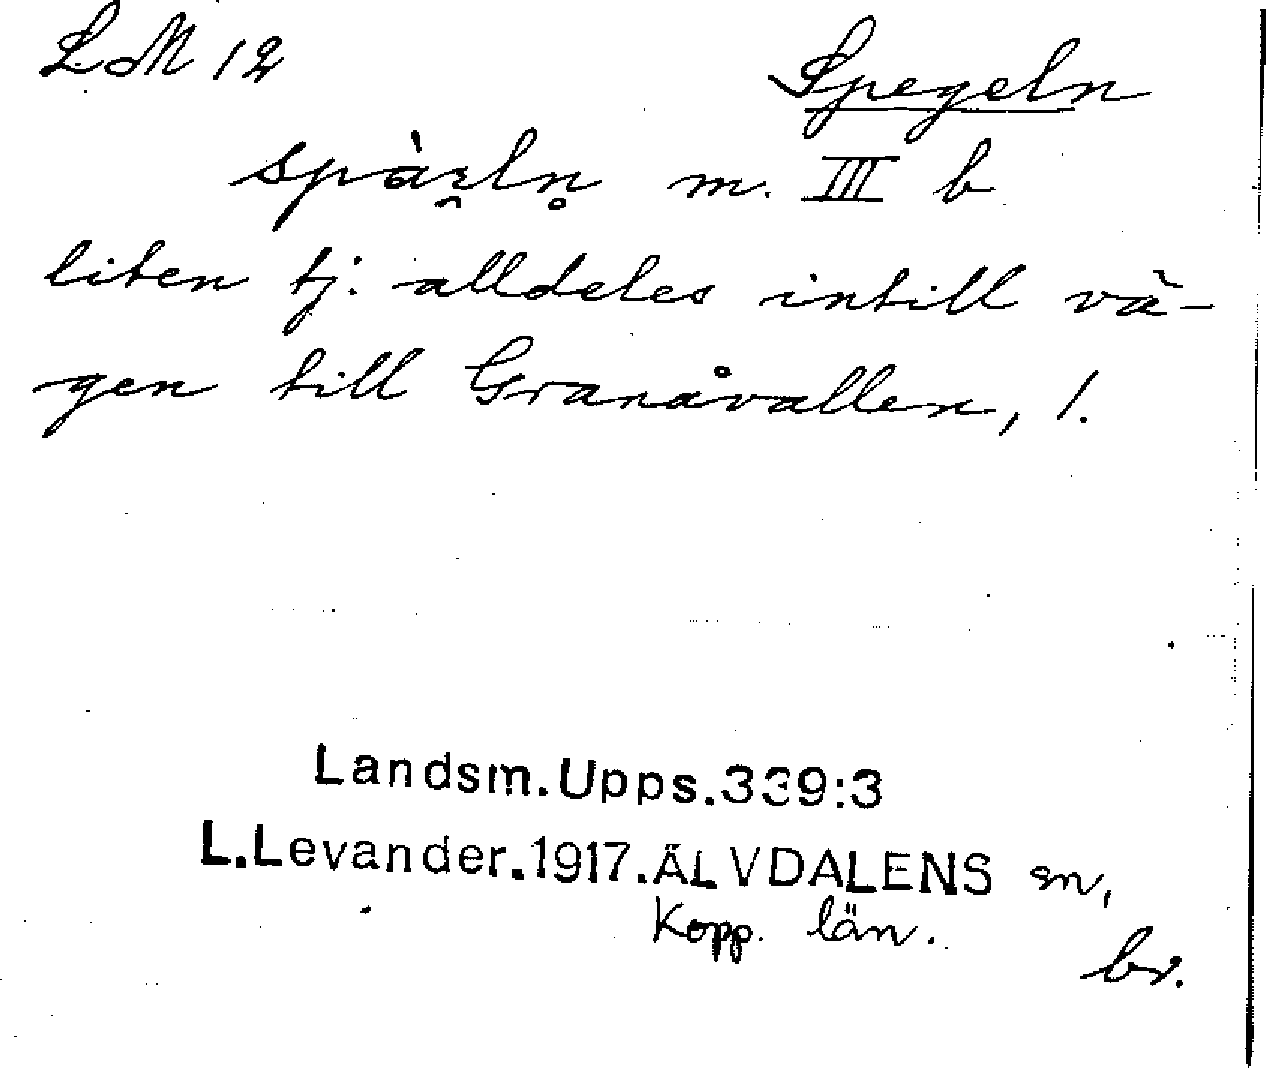 LM 12
Spegeln
spàɪ̯ln̥ m. III b
liten tj. alldeles intill vä-
gen till Granåvallen, l.
Landsm.Upps.339:3
L.Levander.1917.ÄLVDALENS sn,
Kopp. län.
br.